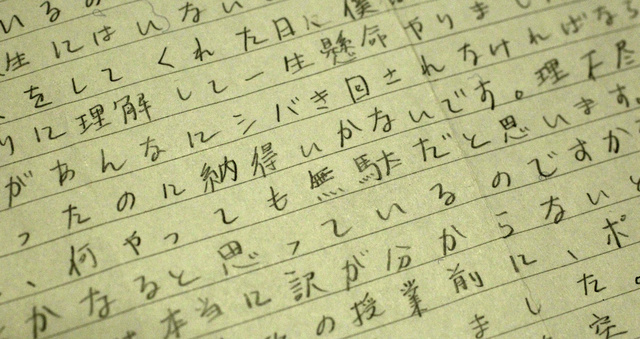 いるの
生にはいない
をしてくれた日に僕
りに理解して一生懸命やりまし
があんなにシバき回されなければなら
ったのに納得いかないです。理不尽
、何やっても無駄だと思います。
かなると思っているのですか
本当に訳が分からないと
の授業前に、ポ
ました。
空